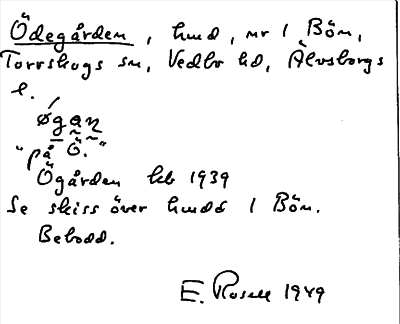 Ödegården, hmd, nr 1 Bön,
Torrskogs sn, Vedbo hd, Älvsborgs
l.
øgan̥
"på Ö."
Ögården kb 1939
Se skiss över hmdd 1 Bön.
Bebodd.
E. Rosell 1949